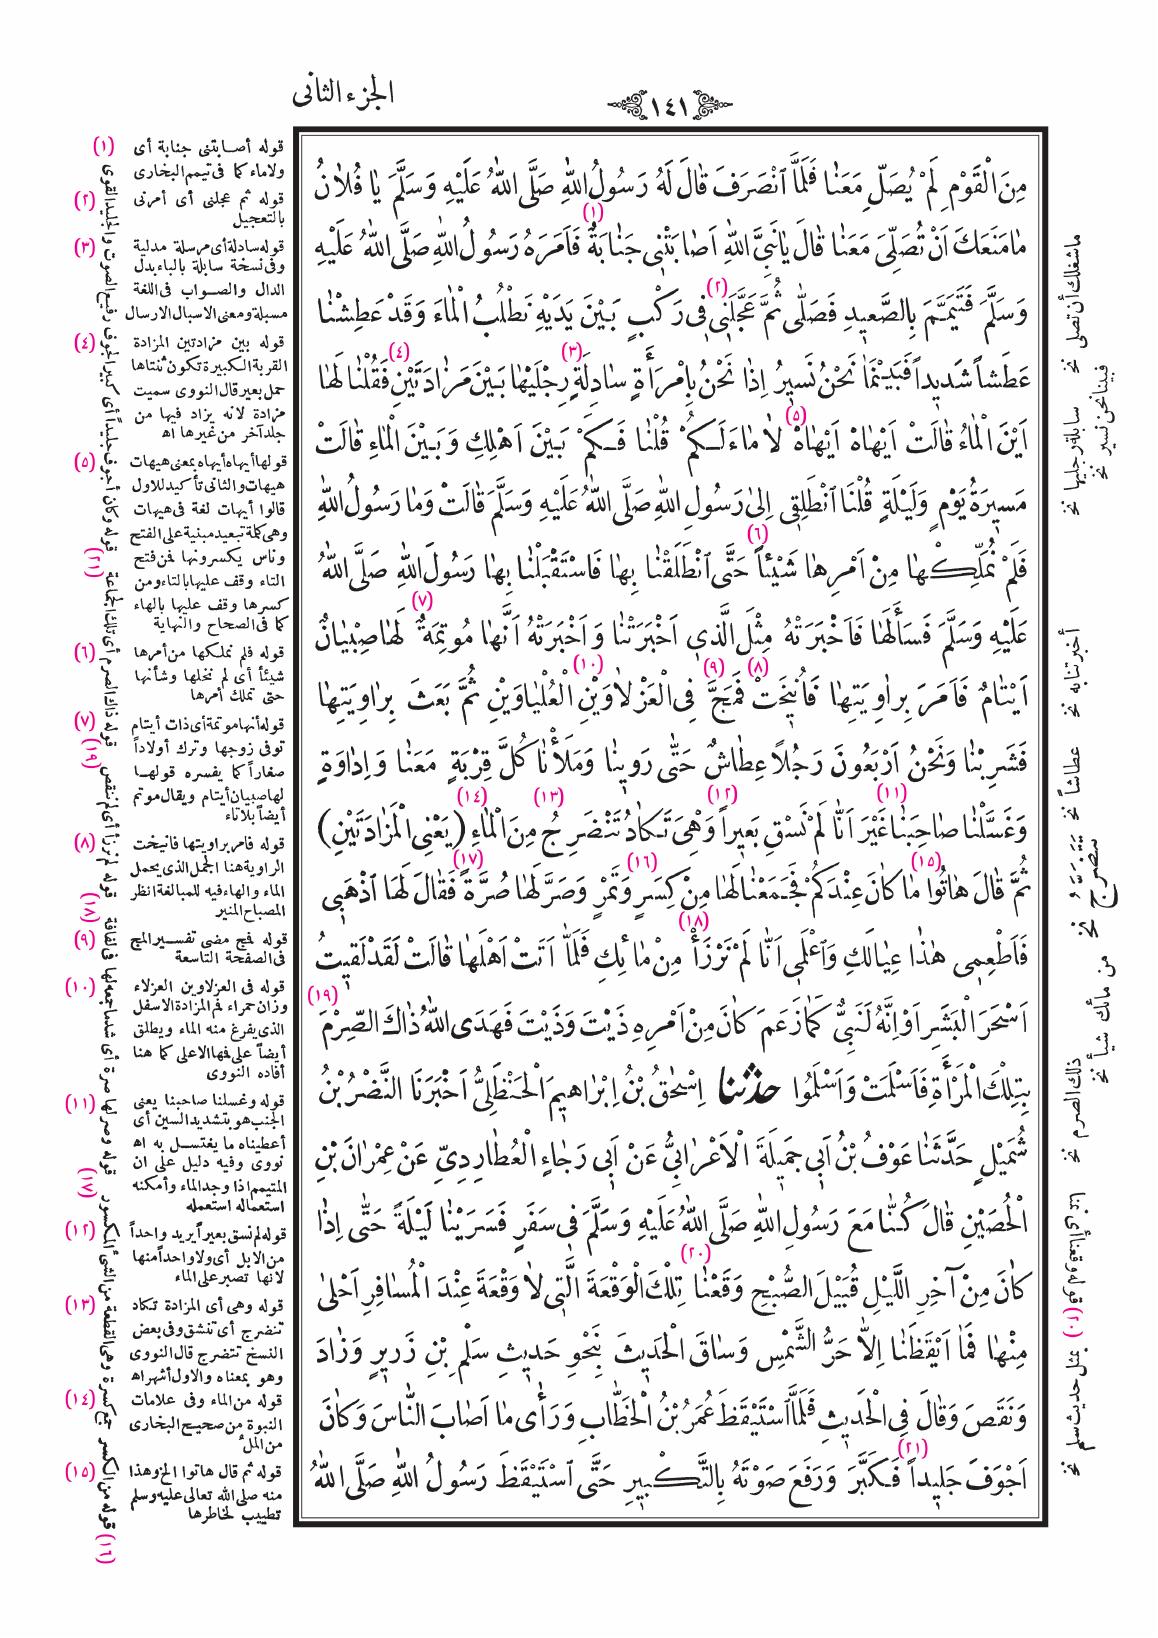 الجزء الثانى
١٤١
مِنَ الْقَوْمِ لَمْ يُصَلِّ مَعَنَا فَلَمَّا انْصَرَفَ قَالَ لَهُ رَسُولُ اللّٰهِ صَلَّى اللّٰهُ عَلَيْهِ وَسَلَّمَ يَا فُلَانُ
مَا مَنَعَكَ اَنْ تُصَلِّىَ مَعَنَا قَالَ يَا نَبِىَّ اللّٰهِ اَصَابَتْنِى (١) جَنَابَةٌ فَاَمَرَهُ رَسُولُ اللّٰهِ صَلَّى اللّٰهُ عَلَيْهِ
وَسَلَّمَ فَتَيَمَّمَ بِالصَّعِيدِ فَصَلَّى ثُمَّ عَجَّلَنِى (٢) فِى رَكْبٍ بَيْنَ يَدَيْهِ نَطْلُبُ الْمَاءَ وَقَدْ عَطِشْنَا
عَطَشاً شَدِيداً فَبَيْنَمَا نَحْنُ نَسِيرُ اِذَا نَحْنُ بِامْرَأَةٍ سَادِلَةٍ (٣) رِجْلَيْهَا بَيْنَ مَزَادَتَيْنِ (٤) فَقُلْنَا لَهَا
اَيْنَ الْمَاءُ قَالَتْ اَيْهَاهْ اَيْهَاهْ (٥) لَا مَاءَ لَكُمْ قُلْنَا فَكَمْ بَيْنَ اَهْلِكِ وَبَيْنَ الْمَاءِ قَالَتْ
مَسِيرَةُ يَوْمٍ وَلَيْلَةٍ قُلْنَا انْطَلِقِى اِلَى رَسُولِ اللّٰهِ صَلَّى اللّٰهُ عَلَيْهِ وَسَلَّمَ قَالَتْ وَمَا رَسُولُ اللّٰهِ
فَلَمْ نُمَلِّكْهَا مِنْ اَمْرِهَا شَيْئاً (٦) حَتَّى انْطَلَقْنَا بِهَا فَاسْتَقْبَلْنَا بِهَا رَسُولَ اللّٰهِ صَلَّى اللّٰهُ
عَلَيْهِ وَسَلَّمَ فَسَأَلَهَا فَاَخْبَرَتْهُ مِثْلَ الَّذِى اَخْبَرَتْنَا وَاَخْبَرَتْهُ اَنَّهَا مُوتِمَةٌ (٧) لَهَا صِبْيَانٌ
اَيْتَامٌ فَاَمَرَ بِرَاوِيَتِهَا فَاُنِيخَتْ (٨) فَمَجَّ (٩) فِى الْعَزْلَاوَيْنِ (١٠) الْعُلْيَاوَيْنِ ثُمَّ بَعَثَ بِرَاوِيَتِهَا
فَشَرِبْنَا وَنَحْنُ اَرْبَعُونَ رَجُلاً عِطَاشٌ حَتَّى رَوِينَا وَمَلَأْنَا كُلَّ قِرْبَةٍ مَعَنَا وَاِدَاوَةٍ
وَغَسَّلْنَا صَاحِبَنَا (١١) غَيْرَ اَنَّا لَمْ نَسْقِ بَعِيراً (١٢) وَهِىَ تَكَادُ تَنْضَرِجُ (١٣) مِنَ الْمَاءِ (١٤) (يَعْنِى الْمَزَادَتَيْنِ)
ثُمَّ قَالَ هَاتُوا (١٥) مَا كَانَ عِنْدَكُمْ فَجَمَعْنَا لَهَا مِنْ كِسَرٍ (١٦) وَتَمْرٍ وَصَرَّ لَهَا صُرَّةً (١٧) فَقَالَ لَهَا اذْهَبِى
فَاَطْعِمِى هٰذَا عِيَالَكِ وَاعْلَمِى اَنَّا لَمْ نَرْزَأْ (١٨) مِنْ مَائِكِ فَلَمَّا اَتَتْ اَهْلَهَا قَالَتْ لَقَدْ لَقِيتُ
اَسْحَرَ الْبَشَرِ اَوْ اِنَّهُ لَنَبِىٌّ كَمَا زَعَمَ كَانَ مِنْ اَمْرِهِ ذَيْتَ وَذَيْتَ فَهَدَى اللّٰهُ ذَاكَ الصِّرْمَ (١٩)
بِتِلْكَ الْمَرْأَةِ فَاَسْلَمَتْ وَاَسْلَمُوا حدثنا اِسْحٰقُ بْنُ اِبْرَاهِيمَ الْحَنْظَلِىُّ اَخْبَرَنَا النَّضْرُ بْنُ
شُمَيْلٍ حَدَّثَنَا عَوْفُ بْنُ اَبِى جَمِيلَةَ الْاَعْرَابِىُّ عَنْ اَبِى رَجَاءٍ الْعُطَارِدِىِّ عَنْ عِمْرَانَ بْنِ
الْحُصَيْنِ قَالَ كُنَّا مَعَ رَسُولِ اللّٰهِ صَلَّى اللّٰهُ عَلَيْهِ وَسَلَّمَ فِى سَفَرٍ فَسَرَيْنَا لَيْلَةً حَتَّى اِذَا
كَانَ مِنْ آخِرِ اللَّيْلِ قُبَيْلَ الصُّبْحِ وَقَعْنَا (٢٠) تِلْكَ الْوَقْعَةَ الَّتِى لَا وَقْعَةَ عِنْدَ الْمُسَافِرِ اَحْلَى
مِنْهَا فَمَا اَيْقَظَنَا اِلَّا حَرُّ الشَّمْسِ وَسَاقَ الْحَدِيثَ بِنَحْوِ حَدِيثِ سَلْمِ بْنِ زَرِيرٍ وَزَادَ
وَنَقَصَ وَقَالَ فِى الْحَدِيثِ فَلَمَّا اسْتَيْقَظَ عُمَرُ بْنُ الْخَطَّابِ وَرَأَى مَا اَصَابَ النَّاسَ وَكَانَ
اَجْوَفَ جَلِيداً (٢١) فَكَبَّرَ وَرَفَعَ صَوْتَهُ بِالتَّكْبِيرِ حَتَّى اسْتَيْقَظَ رَسُولُ اللّٰهِ صَلَّى اللّٰهُ
ما شغلك أن تصلى نخ
سابلة رجليها نخ
فبينا نحن نسير نخ
أخبرتنا به نخ
عطاشاً نخ
من مائك شيأ نخ
ذلك الصرم نخ
(٢٠) قوله وقعنا أى نمنا
بمثل حديث سلم نخ
(١) قوله أصابتنى جنابة أى
ولاماء كما فى تيمم البخارى
(٢) قوله ثم عجلنى أى أمرنى
بالتعجيل
(٣) قوله سادلة أى مرسلة مدلية
وفى نسخة سابلة بالباء بدل
الدال والصواب فى اللغة
مسبلة ومعنى الاسبال الارسال
(٤) قوله بين مزادتين المزادة
القربة الكبيرة تكون ثنتاها
حمل بعير قال النووى سميت
مزادة لانه يزاد فيها من
جلد آخر من غيرها اه
(٥) قولها أيهاه أيهاه بمعنى هيهات
هيهات والثانى تأكيد للاول
قالوا أيهات لغة فى هيهات
وهى كلمة تبعيد مبنية على الفتح
وناس يكسرونها فمن فتح
التاء وقف عليها بالتاء ومن
كسرها وقف عليها بالهاء
كما فى الصحاح والنهاية
(٦) قوله فلم نملكها من أمرها
شيئأ أى لم نخلها وشأنها
حتى تملك أمرها
(٧) قوله أنها موتمة أى ذات أيتام
توفى زوجها وترك أولاداً
صغاراً كما يفسره قولها
لها صبيان أيتام ويقال موتم
أيضاً بلا تاء
(٨) قوله فامر براويتها فانيخت
الراوية هنا الجمل الذى يحمل
الماء والهاء فيه للمبالغة انظر
المصباح المنير
(٩) قوله فمج مضى تفسير المج
فى الصفحة التاسعة
(١٠) قوله فى العزلاوين العزلاء
وزان حمراء فم المزادة الاسفل
الذى يفرغ منه الماء ويطلق
أيضاً على فمها الاعلى كما هنا
أفاده النووى
(١١) قوله وغسلنا صاحبنا يعنى
الجنب هو بتشديد السين أى
أعطيناه ما يغتسل به اه
نووى وفيه دليل على ان
المتيمم اذا وجد الماء وأمكنه
استعماله استعمله
(١٢) قوله لم نسق بعيراً يريد واحداً
من الابل أى ولا واحداً منها
لانها تصبر على الماء
(١٣) قوله وهى أى المزادة تكاد
تنضرج أى تنشق وفى بعض
النسخ تتضرج قال النووى
وهو بمعناه والاول أشهر اه
(١٤) قوله من الماء وفى علامات
النبوة من صحيح البخارى
من الملء
(١٥) قوله ثم قال هاتوا الخ وهذا
منه صلى الله تعالى عليه وسلم
تطييب لخاطرها
(١٦) قوله من الكسر جمع كسرة وهى القطعة من الشىء المكسور
(١٧) قوله وصر لها صرة أى شد ما جمعه لها فى لفافة
(١٨) قوله لم نرزأ أى لم ننقص
(١٩) قوله ذاك الصرم أى تلك الجماعة
(٢١) قوله وكان أجوف جليداً أى كبير الجوف رفيع الصوت والجليد القوى